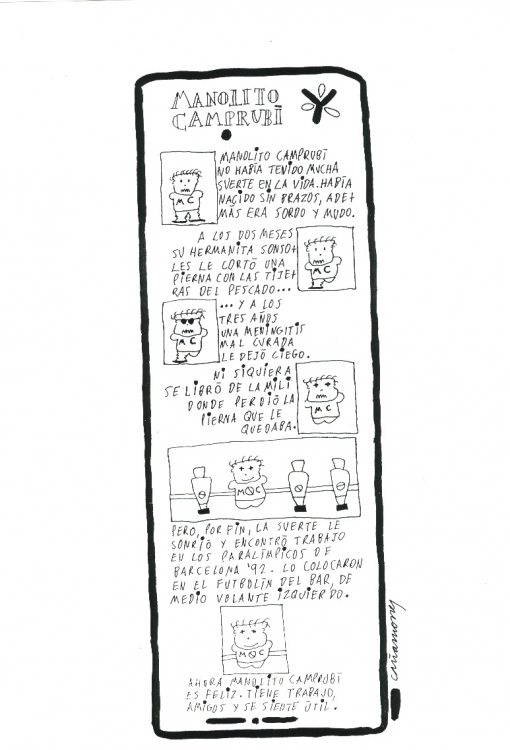 MANOLITO
CAMPRUBĪ
MANOLITO CAMPRUBĪ
NO HABĪA TENIDO MUCHA
SUERTE EN LA VIDA. HABĪA
NACIDO SIN BRAZOS, ADE+
MĀS ERA SORDO Y MUDO.
MC
A LOS DOS MESES
SU HERMANITA SONSO+
LES LE CORTŌ UNA
PIERNA CON LAS TIJE+
RAS DEL PESCADO...
MC
... Y A LOS
TRES AÑOS
UNA MENINGITIS
MAL CURADA
LE DEJŌ CIEGO.
MC
NI SIQUIERA
SE LIBRŌ DE LA MILI
DONDE PERDIŌ LA
PIERNA QUE LE
QUEDABA.
MC
MC
PERO, POR FIN, LA SUERTE LE
SONRIŌ Y ENCONTRŌ TRABAJO
EN LOS PARALĪMPICOS DE
BARCELONA '92. LO COLOCARON
EN EL FUTBOLĪN DEL BAR, DE
MEDIO VOLANTE IZQUIERDO.
MC
AHORA MANOLITO CAMPRUBĪ
ES FELIZ. TIENE TRABAJO,
AMIGOS Y SE SIENTE ŪTIL.